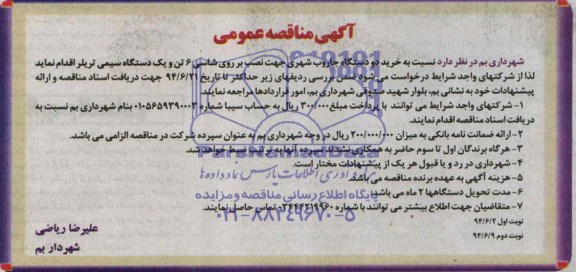 آگهی مناقصه عمومی
شهرداری بم در نظر دارد نسبت به خرید دو دستگاه جاروب شهری جهت نصب بر روی شاسی ۶ تن و یک دستگاه سیمی تریلر اقدام نماید
لذا از شرکتهای واجد شرایط درخواست می شود ضمن بررسی ردیفهای زیر حداکثر تا تاریخ ۹۴/۶/۲۱ جهت دریافت اسناد مناقصه و ارائه
پیشنهادات خود به نشانی بم، بلوار شهید صدوقی شهرداری بم، امور قراردادها مراجعه نمایند.
۱- شرکتهای واجد شرایط می توانند با پرداخت مبلغ ۳۰۰/۰۰۰ ریال به حساب سیبا شماره ۰۱۰۵۶۵۹۳۹۰۰۰۳ بنام شهرداری بم نسبت به
دریافت اسناد مناقصه اقدام نمایند.
۲- ارائه ضمانت نامه بانکی به میزان ۲۰۰/۰۰۰/۰۰۰ ریال در وجه شهرداری بم به عنوان سپرده شرکت در مناقصه الزامی می باشد.
۳- هرگاه برندگان اول تا سوم حاضر به همکاری نشدند سپرده آنها به ترتیب ضبط خواهد شد.
۴- شهرداری در رد و یا قبول هر یک از پیشنهادات مختار است.
۵- هزینه آگهی به عهده برنده مناقصه می باشد.
۶- مدت تحویل دستگاهها ۲ ماه می باشد.
۷- متقاضیان جهت اطلاع بیشتر می توانند با شماره ۰۳۴۴۴۲۱۹۹۶۰ تماس حاصل نمایند.
نوبت اول ۹۴/۶/۲
نوبت دوم ۹۴/۶/۹
علیرضا ریاضی
شهردار بم
ParsNamadData
پایگاه اطلاع رسانی مناقصه و مزایده
۰۲۱-۸۸۳۴۹۶۷۰-۵